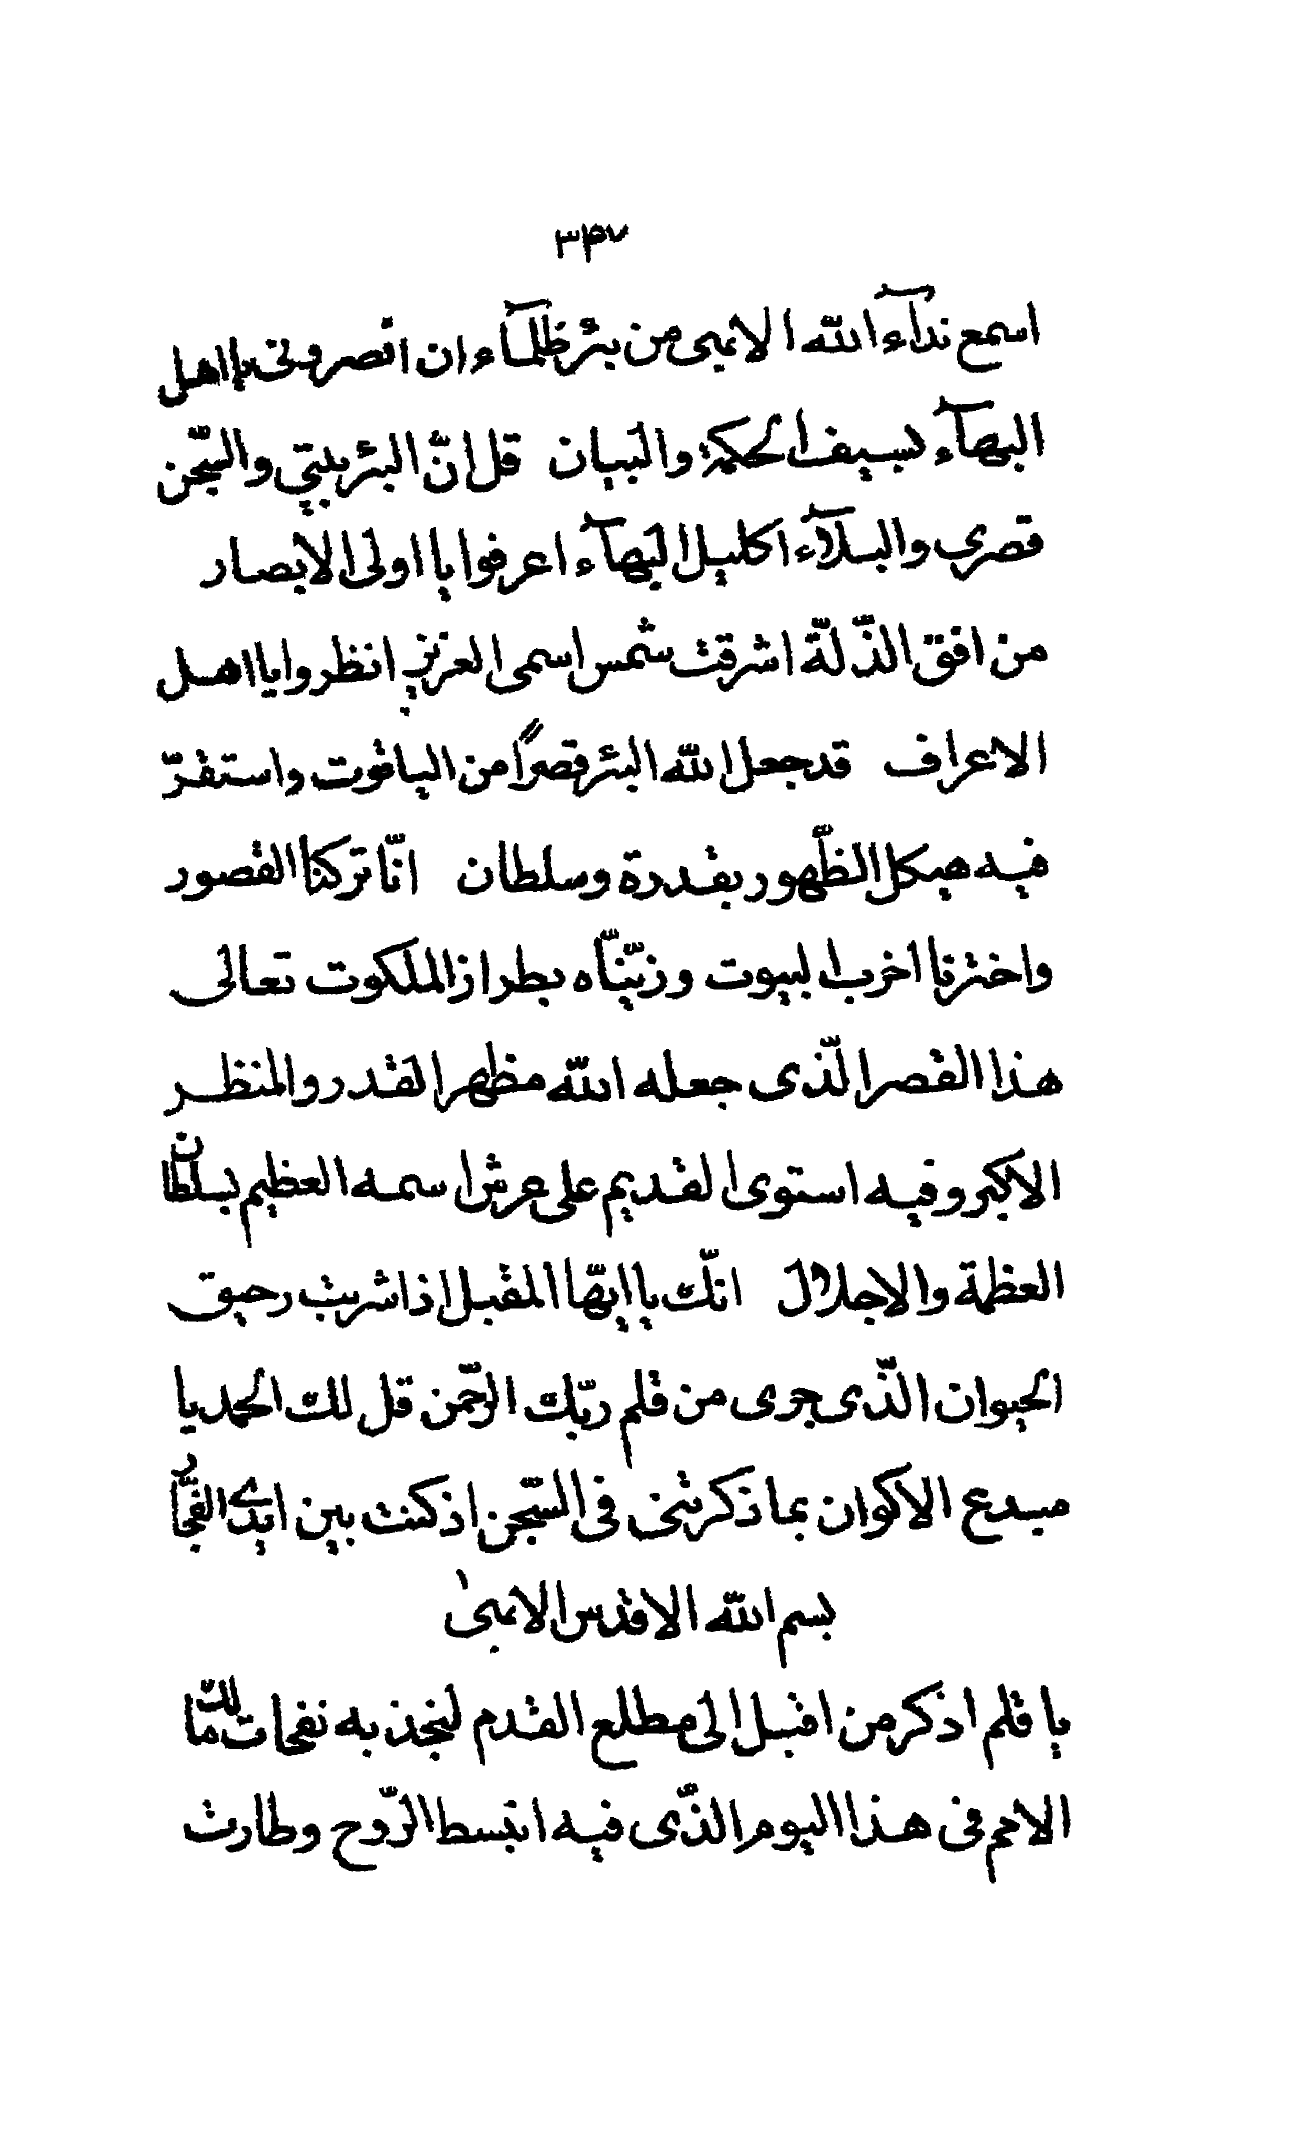 ۳۴۷
اسمع ندآء الله الابهی من بئر ظلمآء ان انصرونی یا اهل
البهآء بسیف الحکمة والبیان قل انّ البئر بیتی والسّجن
قصری والبلآء اکلیل البهآء اعرفوا یا اولی الابصار
من افق الذّلّة اشرقت شمس اسمی العزیز انظروا یا اهل
الاعراف قد جعل الله البئر قصراً من الیاقوت واستقرّ
فیه هیکل الظّهور بقدرة وسلطان انّا ترکنا القصور
واخترنا اخرب البیوت وزیّنّاه بطراز الملکوت تعالی
هذا القصر الّذی جعله الله مظهر القدر والمنظر
الاکبر وفیه استوی القدیم علی عرش اسمه العظیم بسلطان
العظمة والاجلال انّک یا ایّها المقبل اذا شربت رحیق
الحیوان الّذی جری من قلم ربّک الرّحمن قل لک الحمد یا
مبدع الاکوان بما ذکرتنی فی السّجن اذ کنت بین ایدی الفجّار
بسم الله الاقدس الابهیٰ
یا قلم اذکر من اقبل الی مطلع القدم لیجذبه نفحات مالک
الامم فی هذا الیوم الذّی فیه انبسط الرّوح وطارت